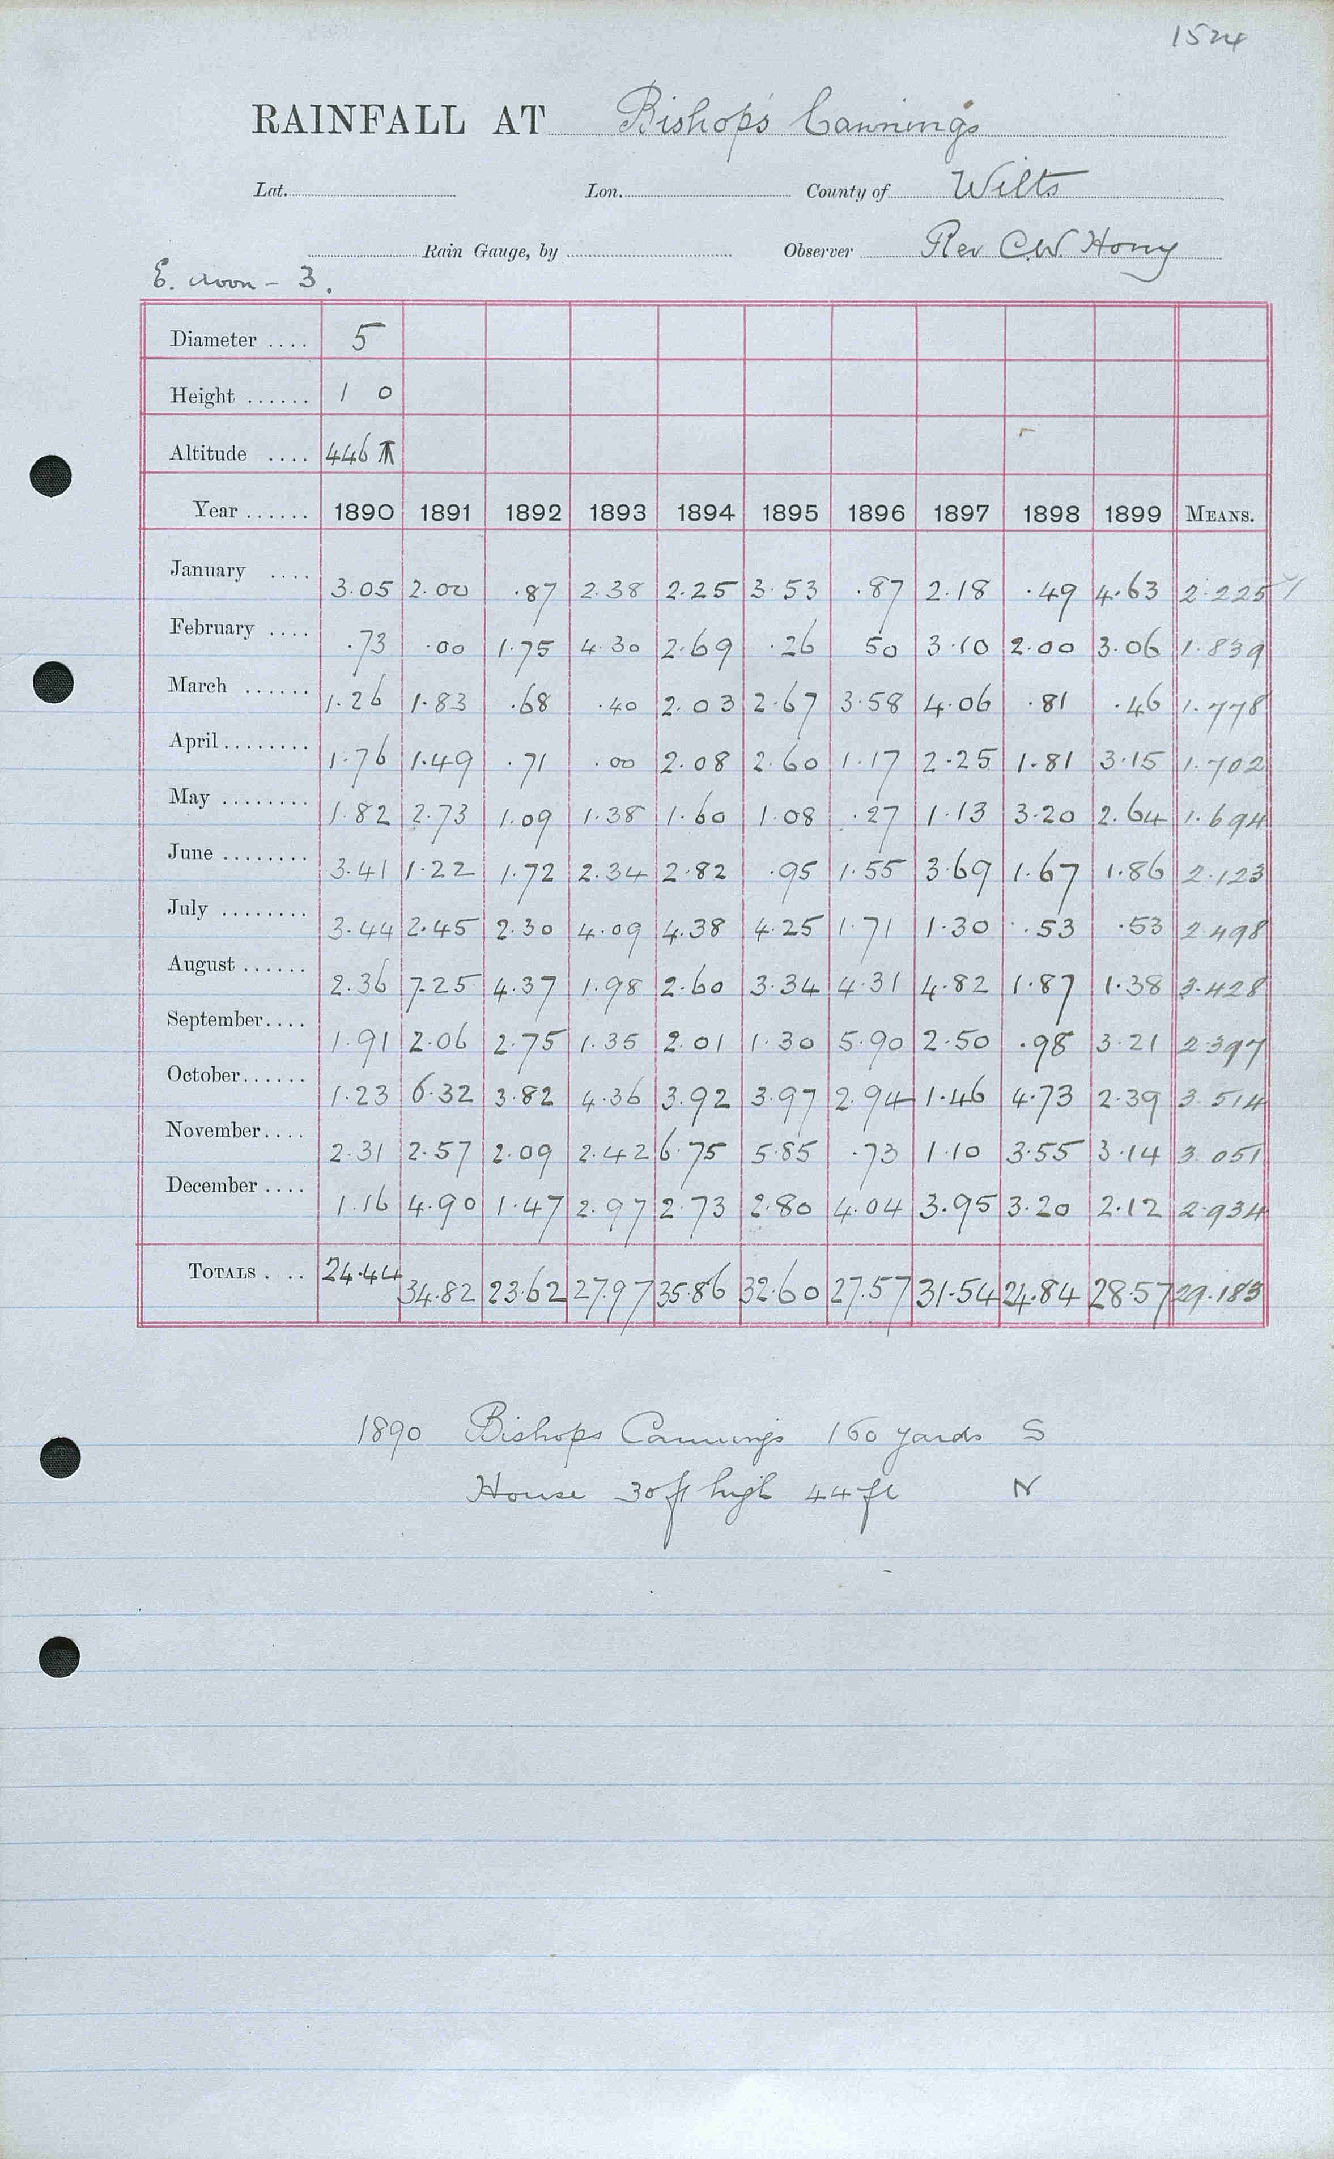 1524
RAINFALL AT Bishops Cannings
Lat. Lon. County of Wilts
Rain Gauge, by Observer Rev C.W. Hony
E. Noon - 3.
Diameter .... 5
Height ...... 1 0
Altitude .... 446
Year ...... 1890 1891 1892 1893 1894 1895 1896 1897 1898 1899 MEANS.
January .... 3.05 2.00 .87 2.38 2.25 3.53 .87 2.18 .49 4.63 2.225
February .... .73 .00 1.75 4.30 2.69 .26 50 3.10 2.00 3.06 1.839
March ...... 1.26 1.83 .68 .40 2.03 2.67 3.58 4.06 .81 .46 1.778
April ........ 1.76 1.49 .71 .00 2.08 2.60 1.17 2.25 1.81 3.15 1.702
May ........ 1.82 2.73 1.09 1.38 1.60 1.08 .27 1.13 3.20 2.64 1.694
June ........ 3.41 1.22 1.72 2.34 2.82 .95 1.55 3.69 1.67 1.86 2.123
July ........ 3.44 2.45 2.30 4.09 4.38 4.25 1.71 1.30 .53 .53 2.498
August ...... 2.36 7.25 4.37 1.98 2.60 3.34 4.31 4.82 1.87 1.38 3.428
September.... 1.91 2.06 2.75 1.35 2.01 1.30 5.90 2.50 .98 3.21 2.397
October...... 1.23 6.32 3.82 4.36 3.92 3.97 2.94 1.46 4.73 2.39 3.514
November.... 2.31 2.57 2.09 2.42 6.75 5.85 .73 1.10 3.55 3.14 3.051
December .... 1.16 4.90 1.47 2.97 2.73 2.80 4.04 3.95 3.20 2.12 2.934
TOTALS . .. 24.44 34.82 23.62 27.97 35.86 32.60 27.57 31.54 24.84 28.57 29.183
1890 Bishops Cannings 160 yards S
House 30 ft high 44 ft N